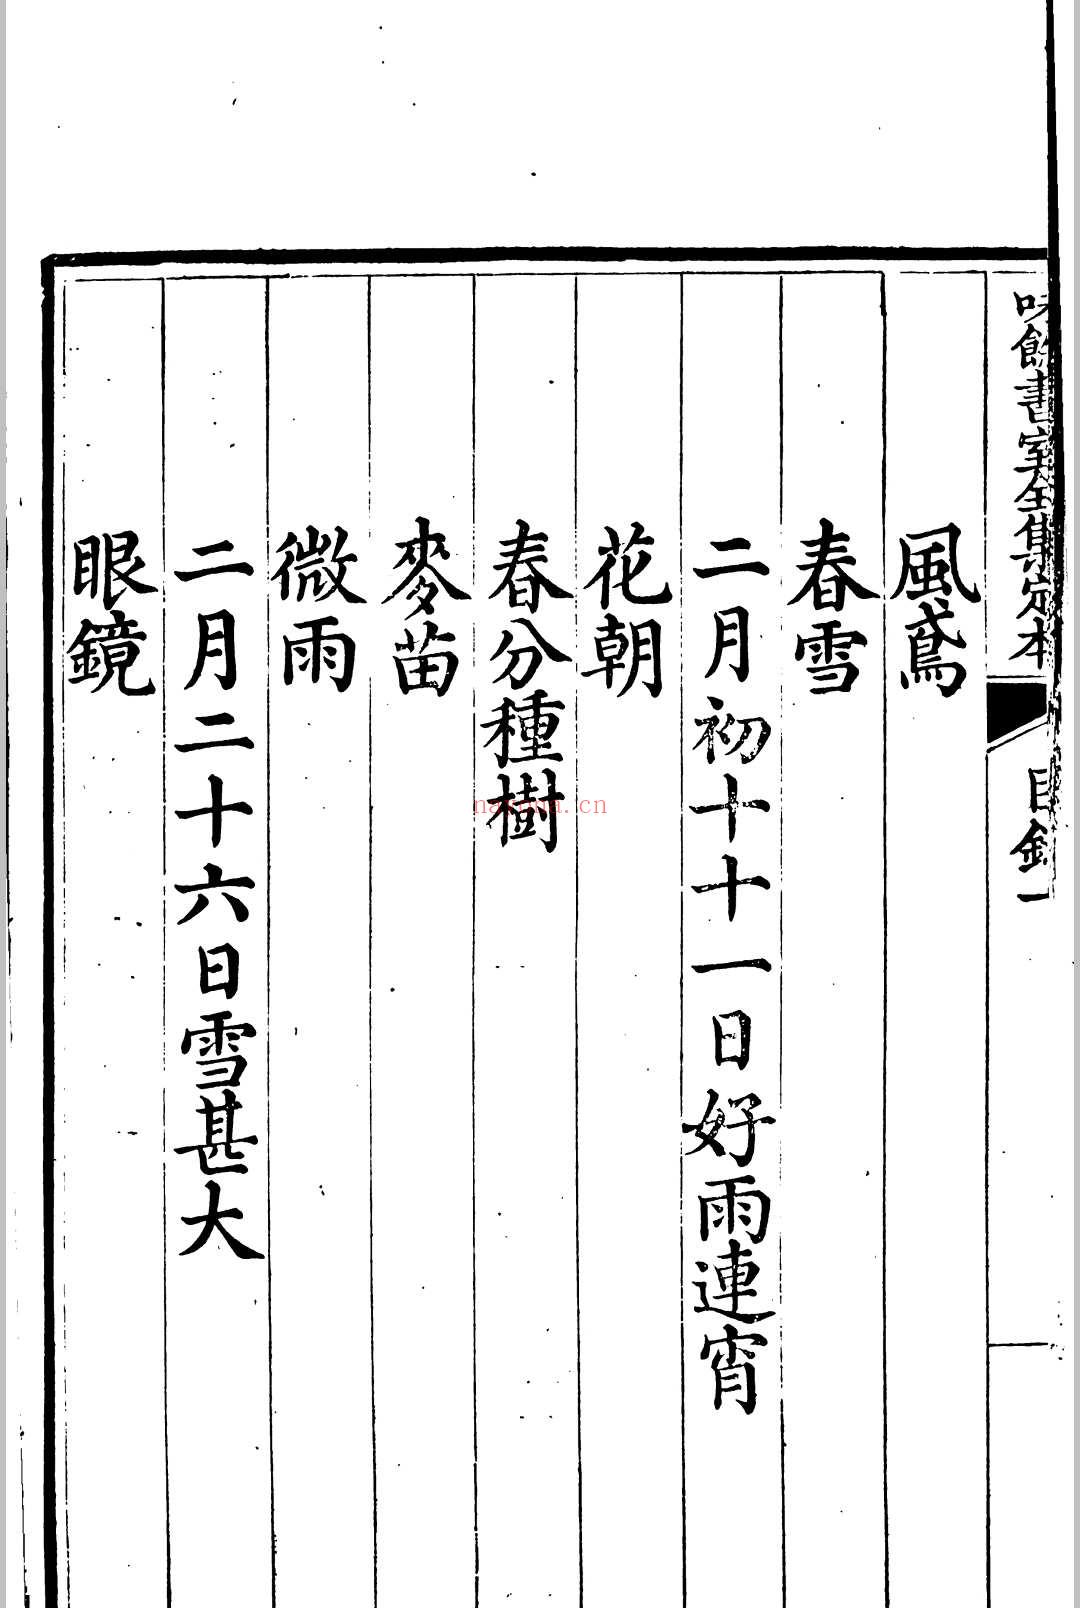 味餘書室全集定本
目錄一
風鳶
春雪
二月初十十一日好雨連宵
花朝
春分種樹
麥苗
微雨
二月二十六日雪甚大
眼鏡